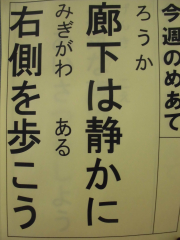 今週のめあて
ろうか
廊下は静かに
みぎがわ ある
右側を歩こう